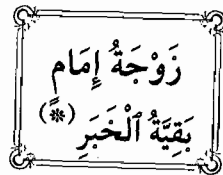 زَوْجَةُ إِمَامٍ
بَقِيَّةُ ٱلْخَبَرِ (*)